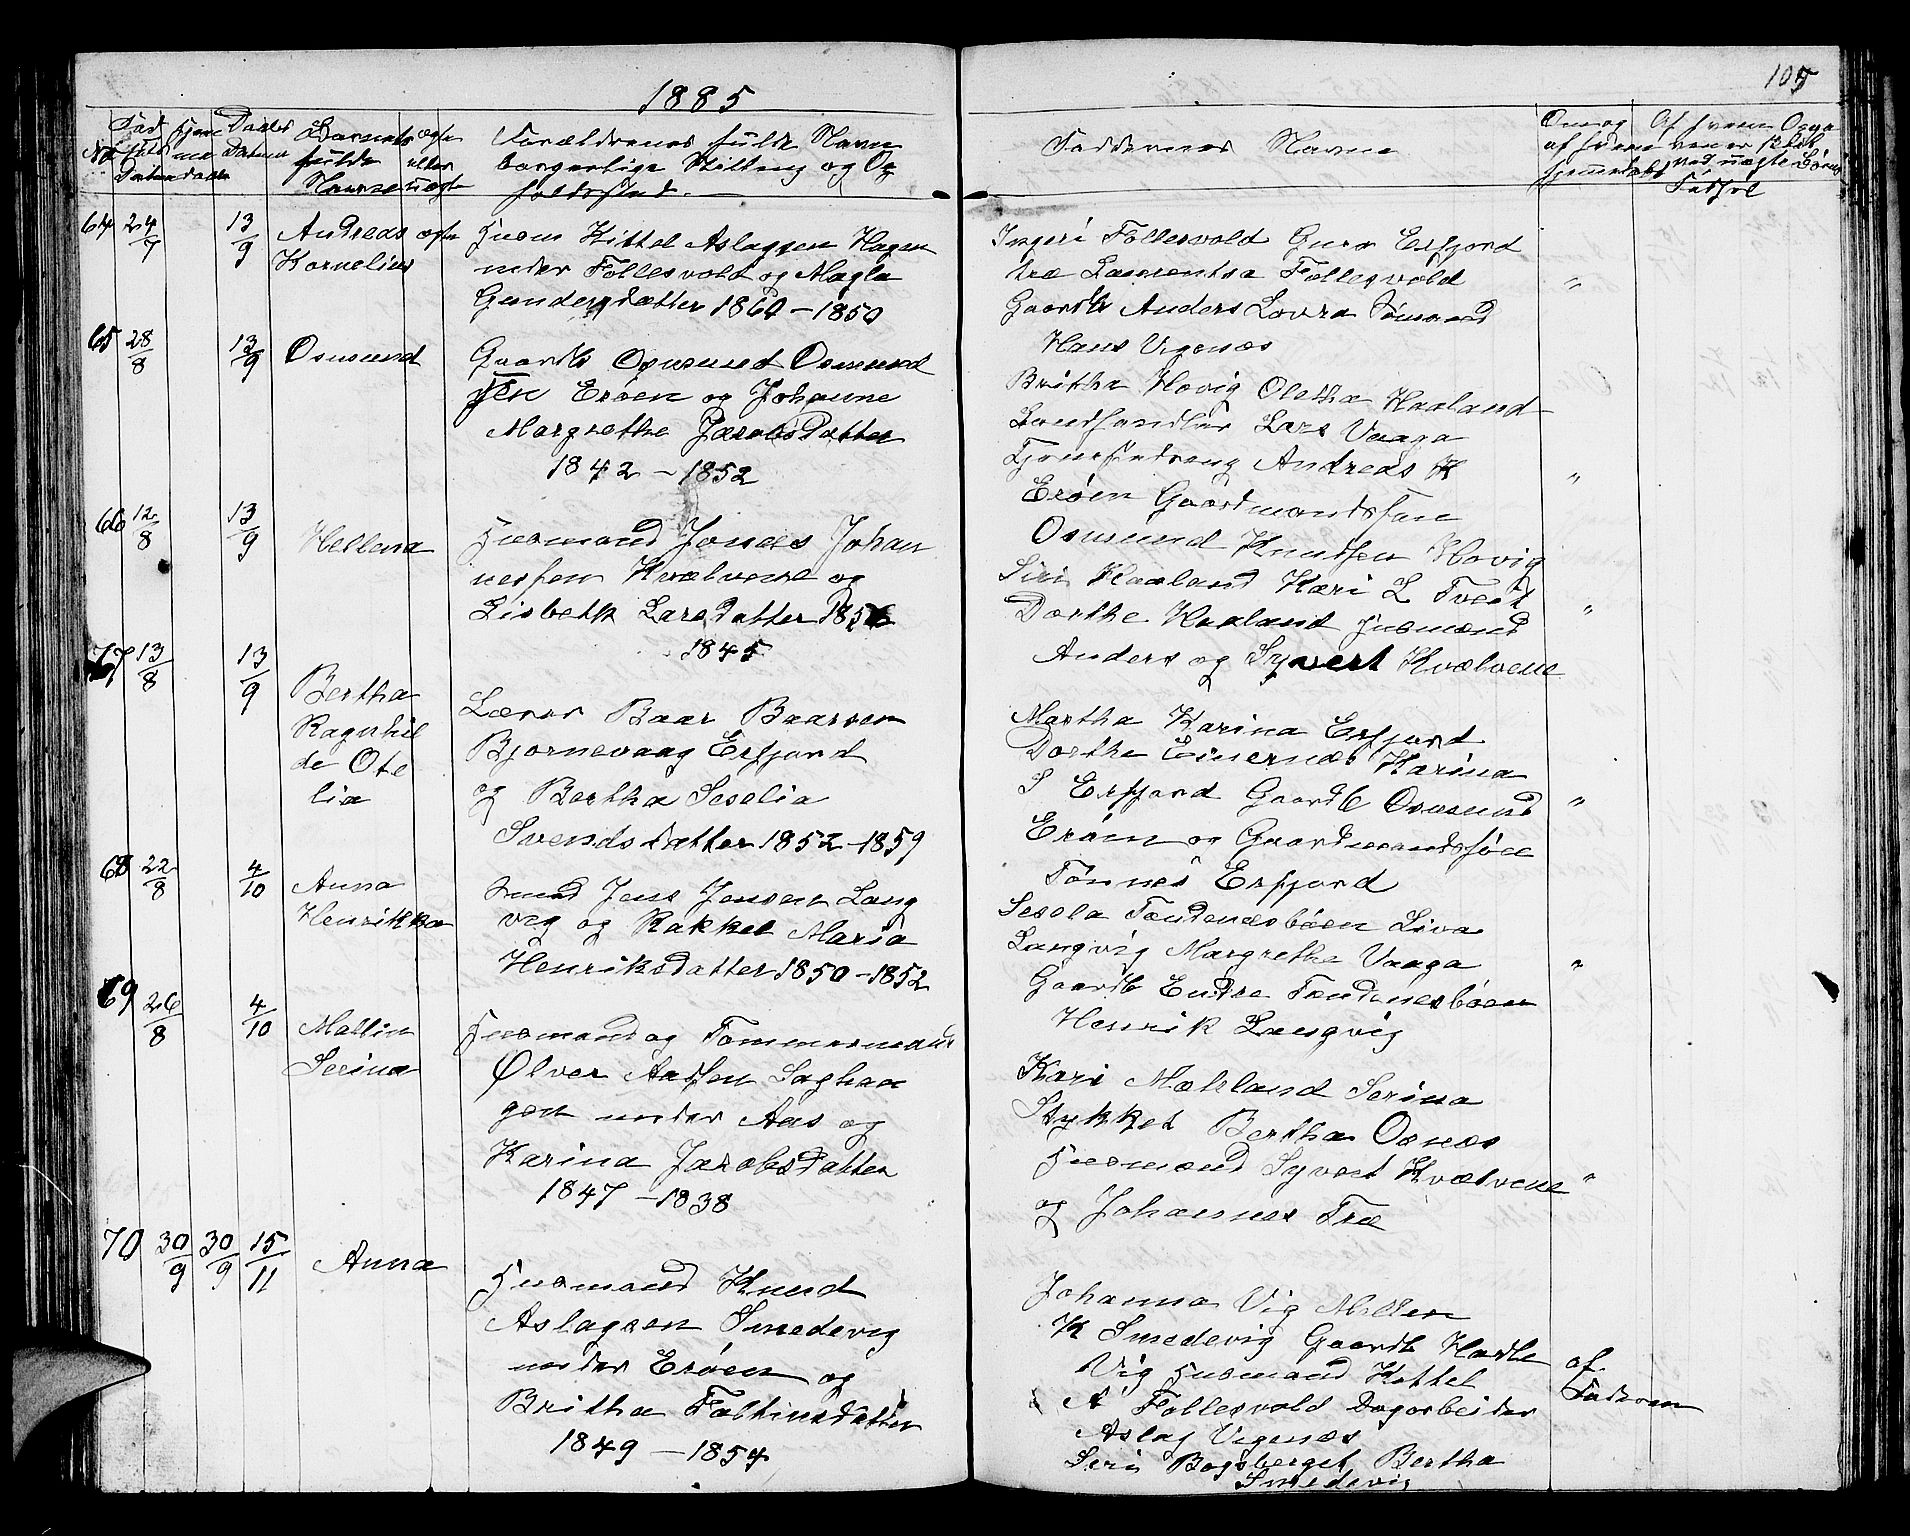 1885
105
No
Fødselsdatum
Hjemmedaab
Daabsdatum
Barnets fulde Navn
ægte eller uægte
Forældrenes fulde Navn
borgerlige Stilling og Op
holdssted.
Faddernes Navne
Om og
af hvem
hjemmedøbt
64 24/7 13/9 Andreas ægte
Kornelius
Huusm Kittel Aslagsen Hagen
under Follesvold og Magla
Gundersdatter 1860 - 1850
Ingeri Follesvold Guro Erfjord
træ Laurentsa Follesvold
Gaardb Anders Lovra
Hans Vigenæs
"
65 28/8 13/9 Osmund
Gaardb Osmund Osmund
sen Erøen og Johanne
Margrethe Jacobsdatter
1842 - 1852
Britha Hovig Oletha Haaland
Landhandler Lars Vaaga
Andreas H
Erøen Gaardmandssøn
Osmund Knudsen Hovig
"
66 12/8 13/9 Hellena
Huusmand Jonas Johan
nessen Kvælvene og
Lisbeth Larsdatter 1856
1845
Siri Haaland Kari L Tveit
Dorthe Haaland Huusmænd
Anders og Syvert Kvælvene
"
67 13/8 13/9 Bertha
Ragnhil
de Ote
lia
Lærer Baar Baarsen
Bjørnevaag Erfjord
og Bertha Seselia
Svendsdatter 1852 - 1859
Martha Karina Erfjord
Dorthe Einernæs Karina
S Erfjord Gaardb Osmund
Erøen og Gaardmandssøn
Tønnes Erfjord
"
68 22/8 4/10 Anna
Henrikka
Jens Jensen Lang
vig og Rakkel Maria
Henriksdatter 1850 - 1852
Sesela Tendenesbøen Liva
Langvig Margrethe Vaaga
Gaardb Endre Tendenesbøen
Henrik Langvig
"
69 26/8 4/10 Mallin
Serina
Huusmand og Tømmermand
Ølver Aassen Saghaa
gen under Aas og
Karina Jacobsdatter
1847 - 1838
Kari Mæhland Serina
Stykket Bertha Osnæs
Huusmænd Syvert Kvælvene
og Johannes Træ
"
70 30/9 30/9 15/11 Anna
Huusmand Knud
Aslagsen Smedevig
under Erøen og
Britha Faltinsdatter
1849 - 1854
Johanna Vig
K Smedevig Gaardb
Vig Huusmand Kittel
A Follesvold Dagarbeider
Aslag Vigenæs
Siri Bogsberget Bertha
Smedevig
af
Faderen